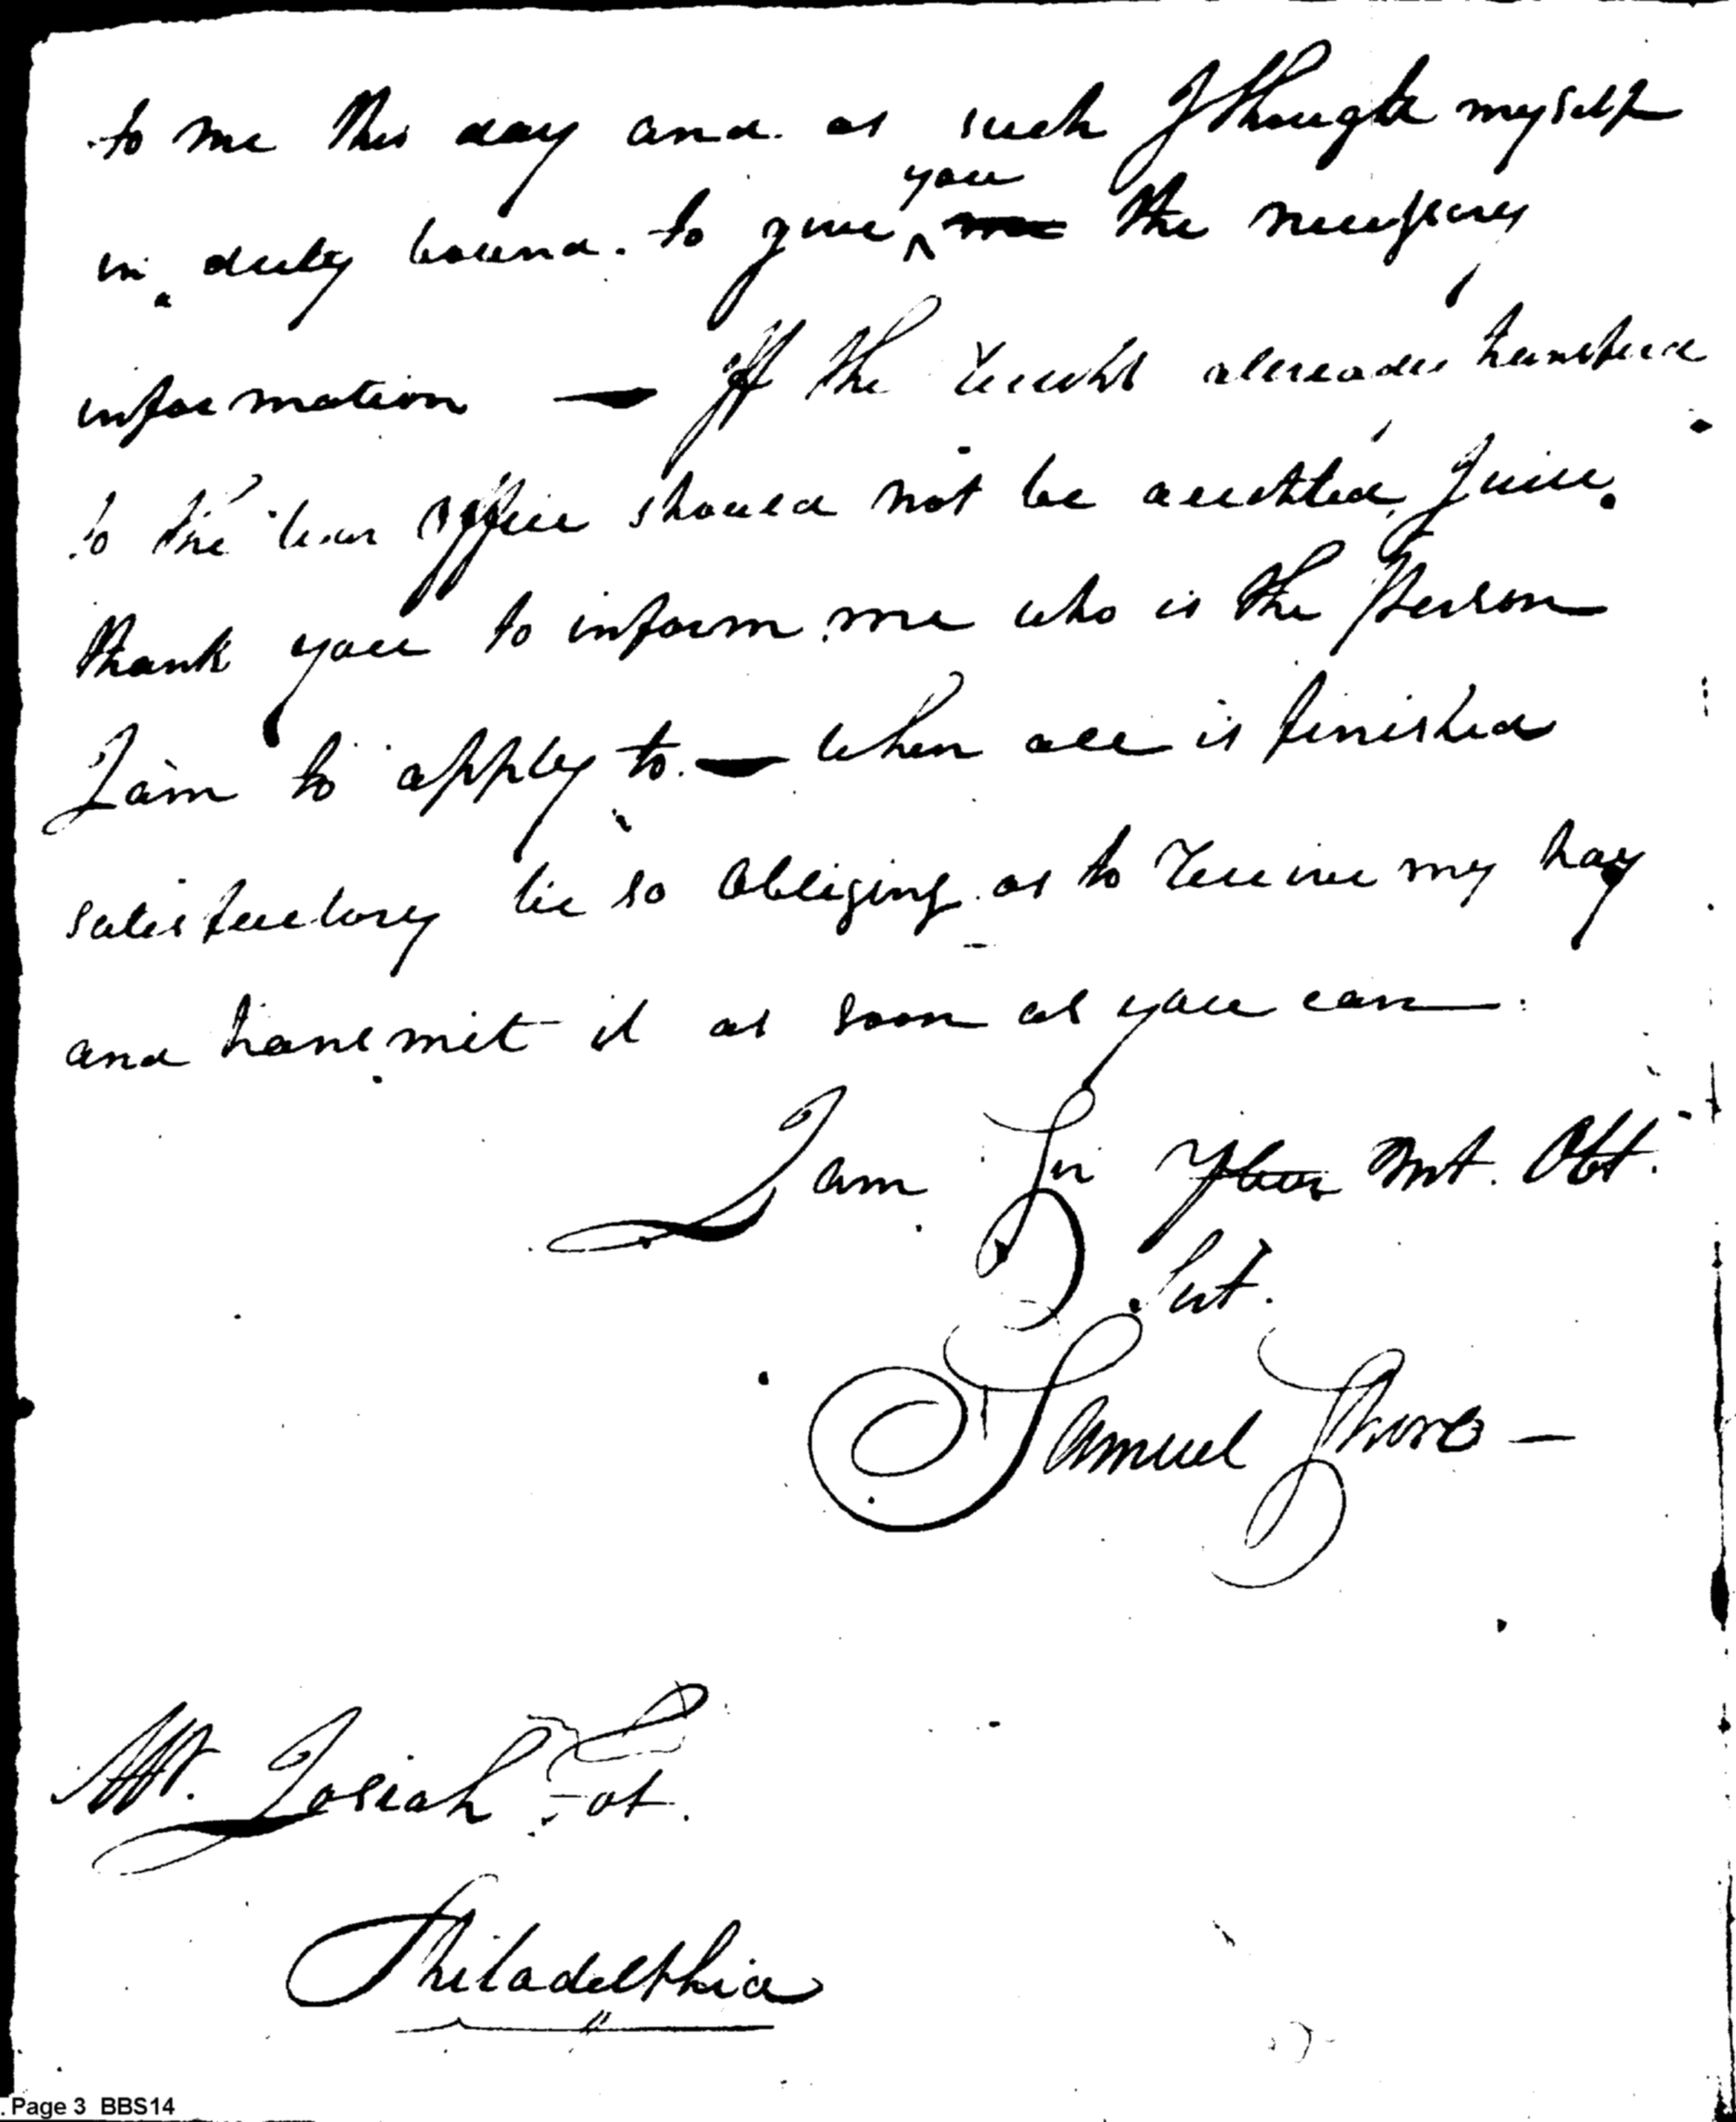 to me this day and as such I thought myself
in duty bound to give you me the necessary
information — If the receipts already
to the War Office should not be I will
thank you to inform me who is the Person
I am to apply to — When all is finished
satisfactory be so Obliging as to receive my Pay
and transmit it as soon as you can
I am Sir Your Mt. Obt.
Sert.
Samuel
Mr. Josiah
Philadelphia
Page 3 BBS14